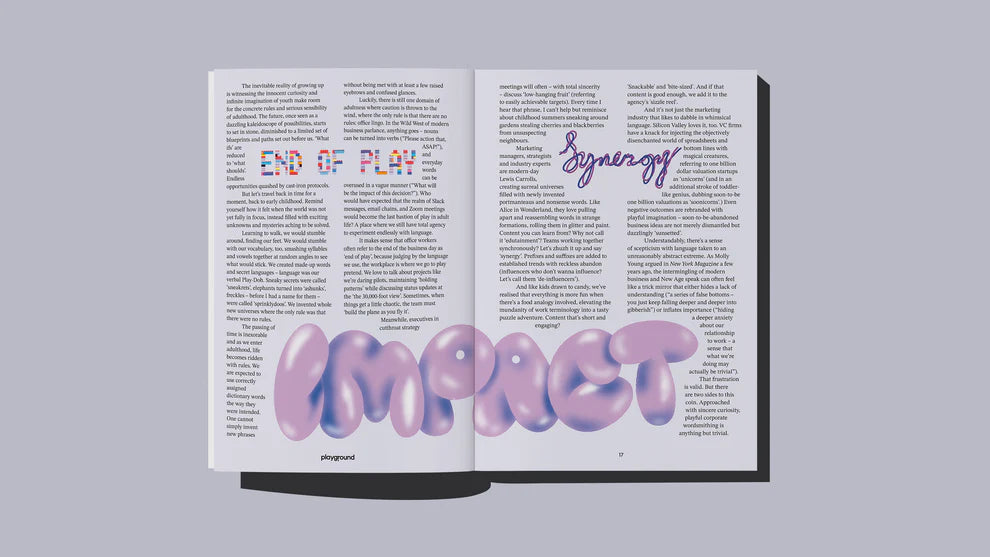 The inevitable reality of growing up
is witnessing the innocent curiosity and
infinite imagination of youth make room
for the concrete rules and serious sensibility
of adulthood. The future, once seen as a
dazzling kaleidoscope of possibilities, starts
to set in stone, diminished to a limited set of
blueprints and paths set out before us. 'What
ifs' are
reduced
to 'what
shoulds'.
Endless
opportunities quashed by cast-iron protocols.
But let's travel back in time for a
moment, back to early childhood. Remind
yourself how it felt when the world was not
yet fully in focus, instead filled with exciting
unknowns and mysteries aching to be solved.
Learning to walk, we would stumble
around, finding our feet. We would stumble
with our vocabulary, too, smushing syllables
and vowels together at random angles to see
what would stick. We created made-up words
and secret languages – language was our
verbal Play-Doh. Sneaky secrets were called
'sneakrets', elephants turned into 'ashunks',
freckles – before I had a name for them –
were called 'sprinklydoos'. We invented whole
new universes where the only rule was that
there were no rules.
The passing of
time is inexorable
and as we enter
adulthood, life
becomes ridden
with rules. We
are expected to
use correctly
assigned
dictionary words
the way they
were intended.
One cannot
simply invent
new phrases
without being met with at least a few raised
eyebrows and confused glances.
Luckily, there is still one domain of
adultness where caution is thrown to the
wind, where the only rule is that there are no
rules: office lingo. In the Wild West of modern
business parlance, anything goes – nouns
can be turned into verbs ("Please action that,
ASAP!"),
and
everyday
words
can be
overused in a vague manner ("What will
be the impact of this decision?"). Who
would have expected that the realm of Slack
messages, email chains, and Zoom meetings
would become the last bastion of play in adult
life? A place where we still have total agency
to experiment endlessly with language.
It makes sense that office workers
often refer to the end of the business day as
'end of play', because judging by the language
we use, the workplace is where we go to play
pretend. We love to talk about projects like
we're daring pilots, maintaining 'holding
patterns' while discussing status updates at
the 'the 30,000-foot view'. Sometimes, when
things get a little chaotic, the team must
'build the plane as you fly it'.
Meanwhile, executives in
cutthroat strategy
END OF PLAY
IMPACT
playground
meetings will often – with total sincerity
– discuss 'low-hanging fruit' (referring
to easily achievable targets). Every time I
hear that phrase, I can't help but reminisce
about childhood summers sneaking around
gardens stealing cherries and blackberries
from unsuspecting
neighbours.
Marketing
managers, strategists
and industry experts
are modern day
Lewis Carrolls,
creating surreal universes
filled with newly invented
portmanteaus and nonsense words. Like
Alice in Wonderland, they love pulling
apart and reassembling words in strange
formations, rolling them in glitter and paint.
Content you can learn from? Why not call
it 'edutainment'? Teams working together
synchronously? Let's zhuzh it up and say
'synergy'. Prefixes and suffixes are added to
established trends with reckless abandon
(influencers who don't wanna influence?
Let's call them 'de-influencers').
And like kids drawn to candy, we've
realised that everything is more fun when
there's a food analogy involved, elevating the
mundanity of work terminology into a tasty
puzzle adventure. Content that's short and
engaging?
Synergy
'Snackable' and 'bite-sized'. And if that
content is good enough, we add it to the
agency's 'sizzle reel'.
And it's not just the marketing
industry that likes to dabble in whimsical
language. Silicon Valley loves it, too. VC firms
have a knack for injecting the objectively
disenchanted world of spreadsheets and
bottom lines with
magical creatures,
referring to one billion
dollar valuation startups
as 'unicorns' (and in an
additional stroke of toddler-
like genius, dubbing soon-to-be
one billion valuations as 'soonicorns'.) Even
negative outcomes are rebranded with
playful imagination – soon-to-be-abandoned
business ideas are not merely dismantled but
dazzlingly 'sunsetted'.
Understandably, there's a sense
of scepticism with language taken to an
unreasonably abstract extreme. As Molly
Young argued in New York Magazine a few
years ago, the intermingling of modern
business and New Age speak can often feel
like a trick mirror that either hides a lack of
understanding ("a series of false bottoms –
you just keep falling deeper and deeper into
gibberish") or inflates importance ("hiding
a deeper anxiety
about our
relationship
to work – a
sense that
what we're
doing may
actually be trivial").
That frustration
is valid. But there
are two sides to this
coin. Approached
with sincere curiosity,
playful corporate
wordsmithing is
anything but trivial.
17